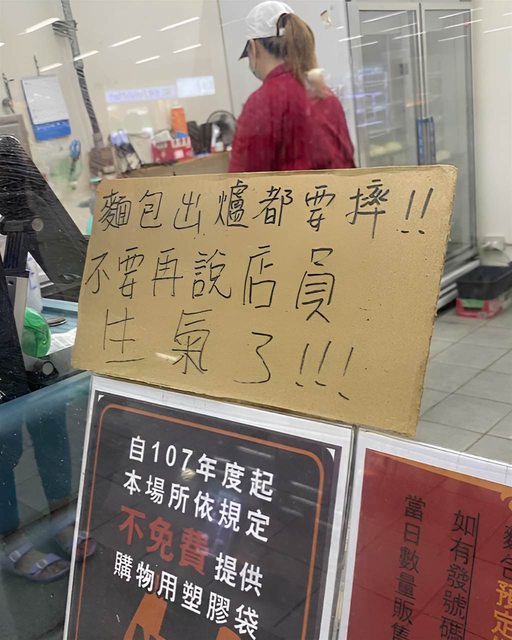 麵包出爐都要摔!!
不要再說店員
生氣了!!!
自107年度起
本場所依規定
不免費提供
購物用塑膠袋
麵包預定
如有發號碼
當日數量販售